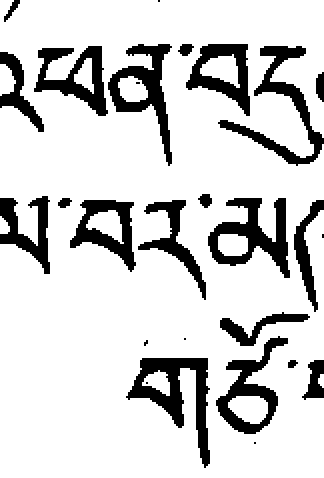 འཕན་བདུ
ས་བར་མ
གཙོ་